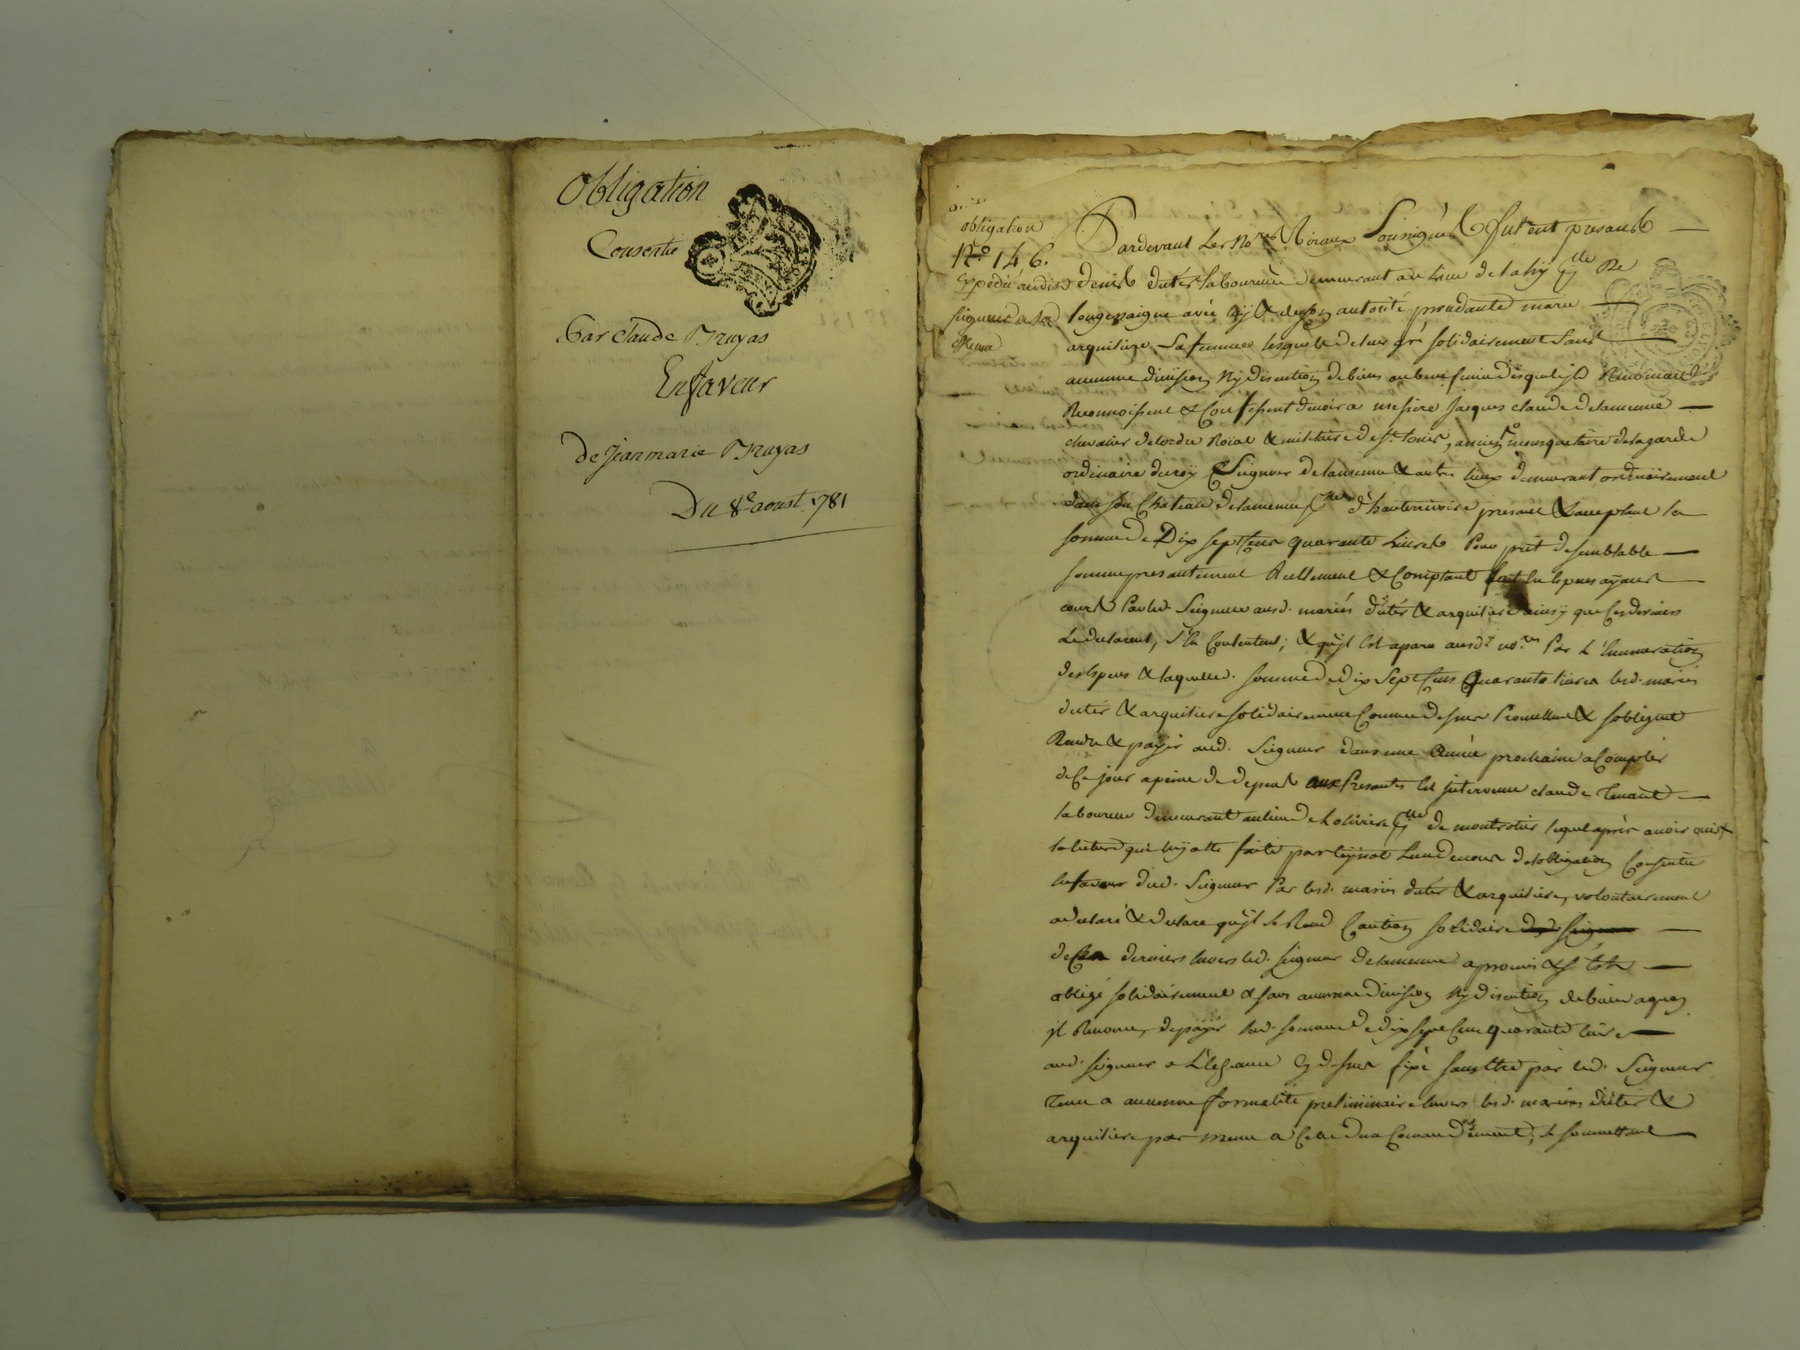 Obligation
Consentie
Par Claude Bruyas
En faveur
De Jean marie Bruyas
Du 8e aoust 1781
obligation
No 146.
Expédié audit
seigneur
Pardevant Les Nores Roiaux Sousignés furent presants
denis dutér laboureur demeurant au lieu de
Longessaigne avec luy & de son autorité procédante marie
arquiliere, sa femme lesquels de leur gré solidairement sans
aucune division Ny discution de biens au benefice desquels ils Renoncent
Reconnoissent & Confessent devoir a messire Jacques claude delamenue
chevalier de lordre Roial & militaire de st Louis, ancien mousquetaire de la garde
ordinaire du roy Seigneur de lamenue & autres lieux demeurant ordinairement
dans son Chateau de lamenue psse d'hauterivoire present & acceptant la
somme de Dix sept cens quarante Livres Pour prêt de semblable
somme presentement Reellement & Comptant fait en especes ayant
cours Par led. Seigneur ausd. mariés dutér & arquiliere ainsy que Ces derniers
Le declarent, s'en Contentent; & qu'il est aparu ausd. nores Par L'Enumeration
des especes & laquelle d. somme de dix Sept Cens Quarante livres lesd. mariés
dutér & arquiliere solidairement Comme dessus Promettent & sobligent
Rendre & payer aud. Seigneur dans une Année prochaine a Compter
de Ce jour a peine de depens aux Presentes Est intervenu claude Tenant
laboureur demeurant au lieu de Lolivière psse de montrotier lequel après avoir ouï
la lecture qui luy a été faite par l'un de nous de lobligation Consentie
En faveur dud. Seigneur Par lesd. mariés dutér & arquiliere, volontairement
a declaré & declare qu'il se Rend Caution solidaire
de Ces derniers Envers led. seigneur de lamenue a promis & s'est
obligé solidairement & sans aucune division Ny discution de biens a quoy
il Renonce, de payer lad. somme de dix sept Cens quarante livres
aud. seigneur a L'Echeance Cy dessus fixé sans Etre par led. Seigneur
Tenu a aucune formalité preliminaire Envers lesd. mariés dutér &
arquiliere pas meme a Celle d'un Comandement; se soumettant